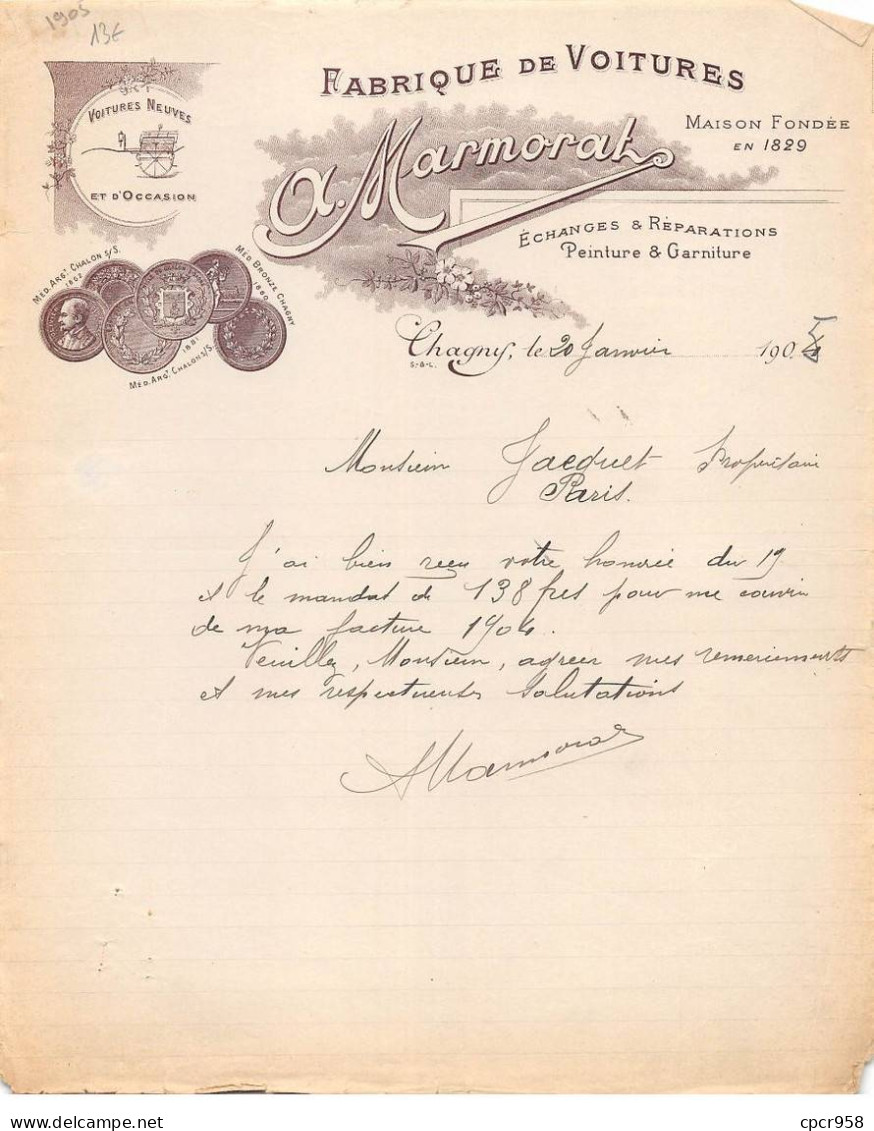 1905
13€
FABRIQUE DE VOITURES
VOITURES NEUVES
ET D'OCCASION
A. Marmorat
MAISON FONDÉE
EN 1829
ÉCHANGES & RÉPARATIONS
Peinture & Garniture
MÉD. ARGT. CHALON S/S.
1862
MÉD. BRONZE CHAGNY
1880
1881
MÉD. ARGT. CHALON S/S.
Chagny, le 20 Janvier 1905
S.-B.-L.
Monsieur Jacquet Propriétaire
Paris.
J'ai bien reçu votre honorée du 19
et le mandat de 138 frcs pour me couvrir
de ma facture 1904.
Veuillez, Monsieur, agréer mes remerciements
et mes respectueuses salutations
A Marmorat
www.delcampe.net
cpcr958